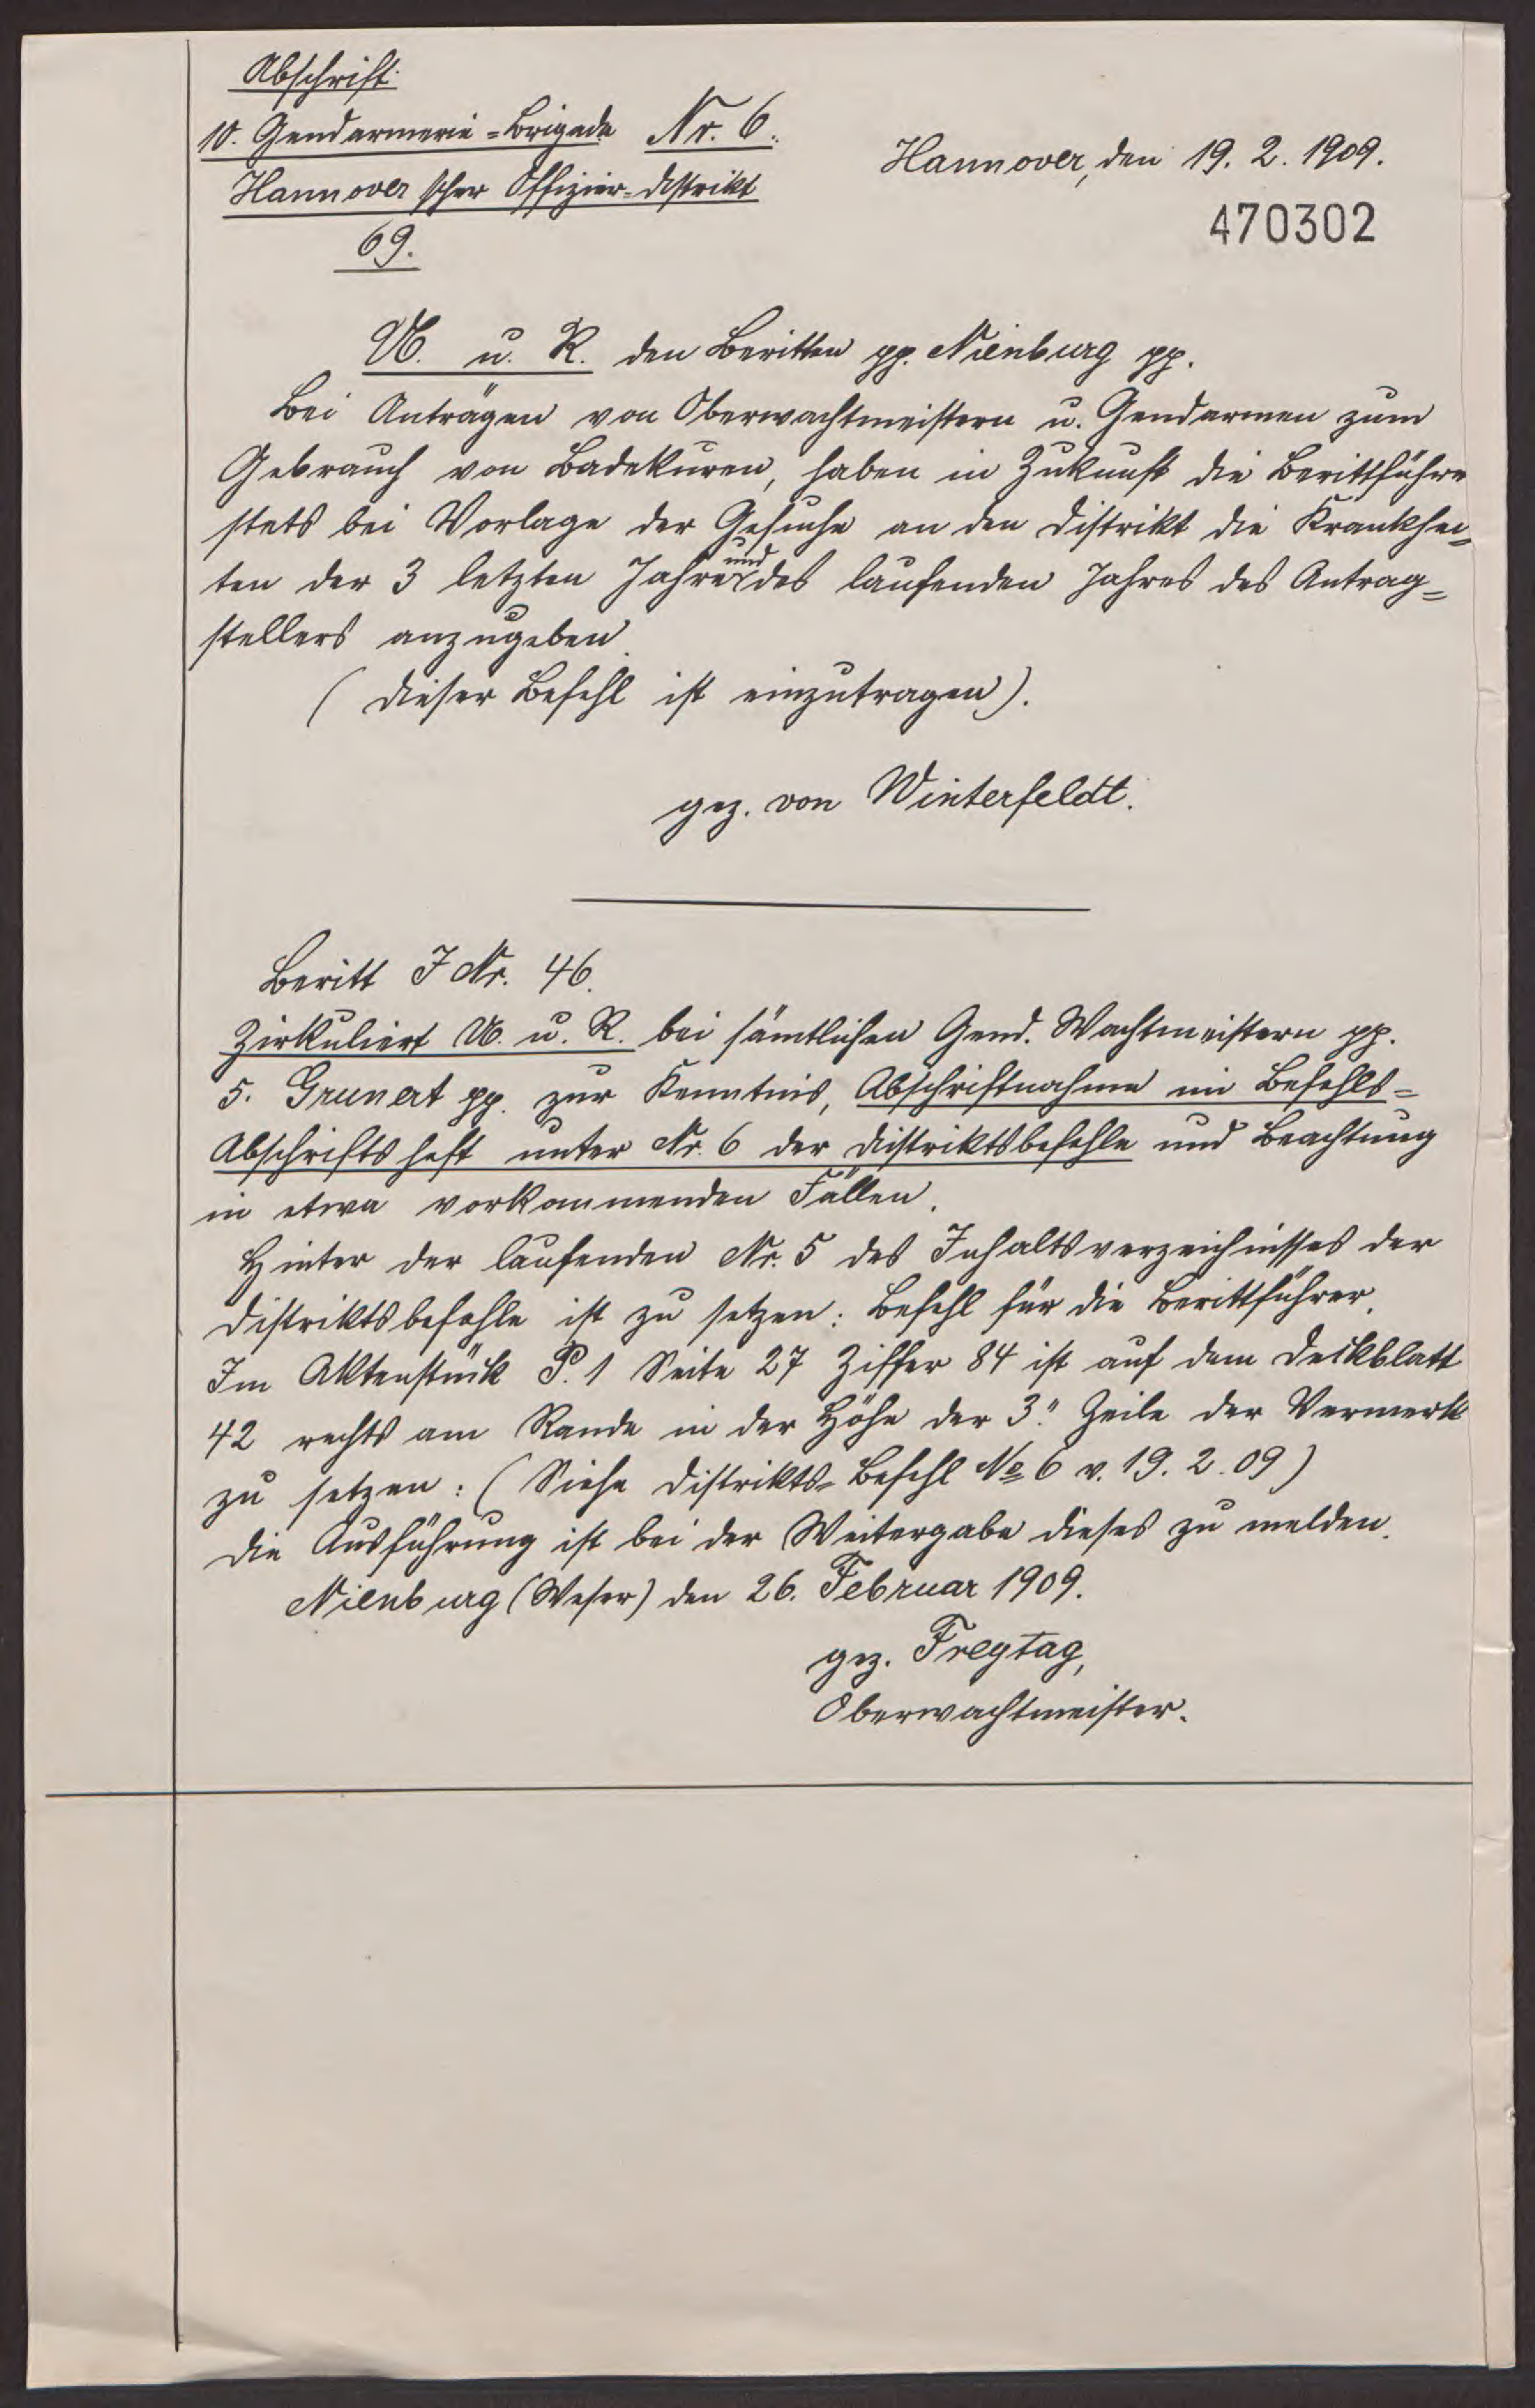 Abschrift.
10. Gendarmerie=Brigade Nr. 6.
Hannover, den 19. 2. 1909.
Hannoverscher Offizier=Distrikt
470302
69.
U. u. R. den Beritten pp. Nienburg pp.
Bei Anträgen von Oberwachtmeistern u. Gendarmen zum
Gebrauch von Badekuren, haben in Zukunft die Berittführer
stets bei Vorlage der Gesuche an den Distrikt die Krankhei=
ten der 3 letzten Jahre und des laufenden Jahres des Antrag=
stellers anzugeben.
(Dieser Befehl ist einzutragen).
gez. von Winterfeldt.
Beritt J Nr. 46.
Zirkuliert U. u. R. bei sämtlichen Gend. Wachtmeistern pp.
5. Grunert pp. zur Kenntnis, Abschriftnahme im Befehls=
Abschriftsheft unter Nr. 6 der Distriktsbefehle und Beachtung
in etwa vorkommenden Fällen.
Hinter der laufenden Nr. 5 des Inhaltsverzeichnisses der
Distriktsbefehle ist zu setzen: Befehl für die Berittführer.
Im Aktenstück P. 1 Seite 27 Ziffer 84 ist auf dem Deckblatt
42 rechts am Rande in der Höhe der 3. Zeile der Vermerk
zu setzen: (Siehe Distrikts=Befehl No 6 v. 19. 2. 09)
Die Ausführung ist bei der Weitergabe dieses zu melden.
Nienburg (Weser) den 26. Februar 1909.
gez. Freytag,
Oberwachtmeister.